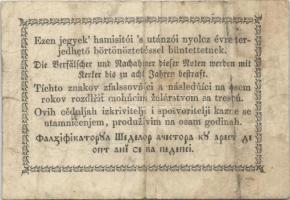 Ezen jegyek' hamisitói 's utánzói nyolcz évre ter-
jedhető börtönöztetéssel büntettetnek.
Die Verfälscher und Nachahmer dieser Noten werden mit
Kerker bis zu acht Jahren bestraft.
Tíchto znakov zfalssovňjci a následúňci na osem
rokov rozdlžit mohúcim žalárstvom sa trescú.
Ovih cédúljah izkrivitelji i sposvoritelji kazne se
utamničenjem, produživim na osam godinah.
Фалхіфікаторул Шеделор ачестора ку арест де
опт ані се ва педепсі.